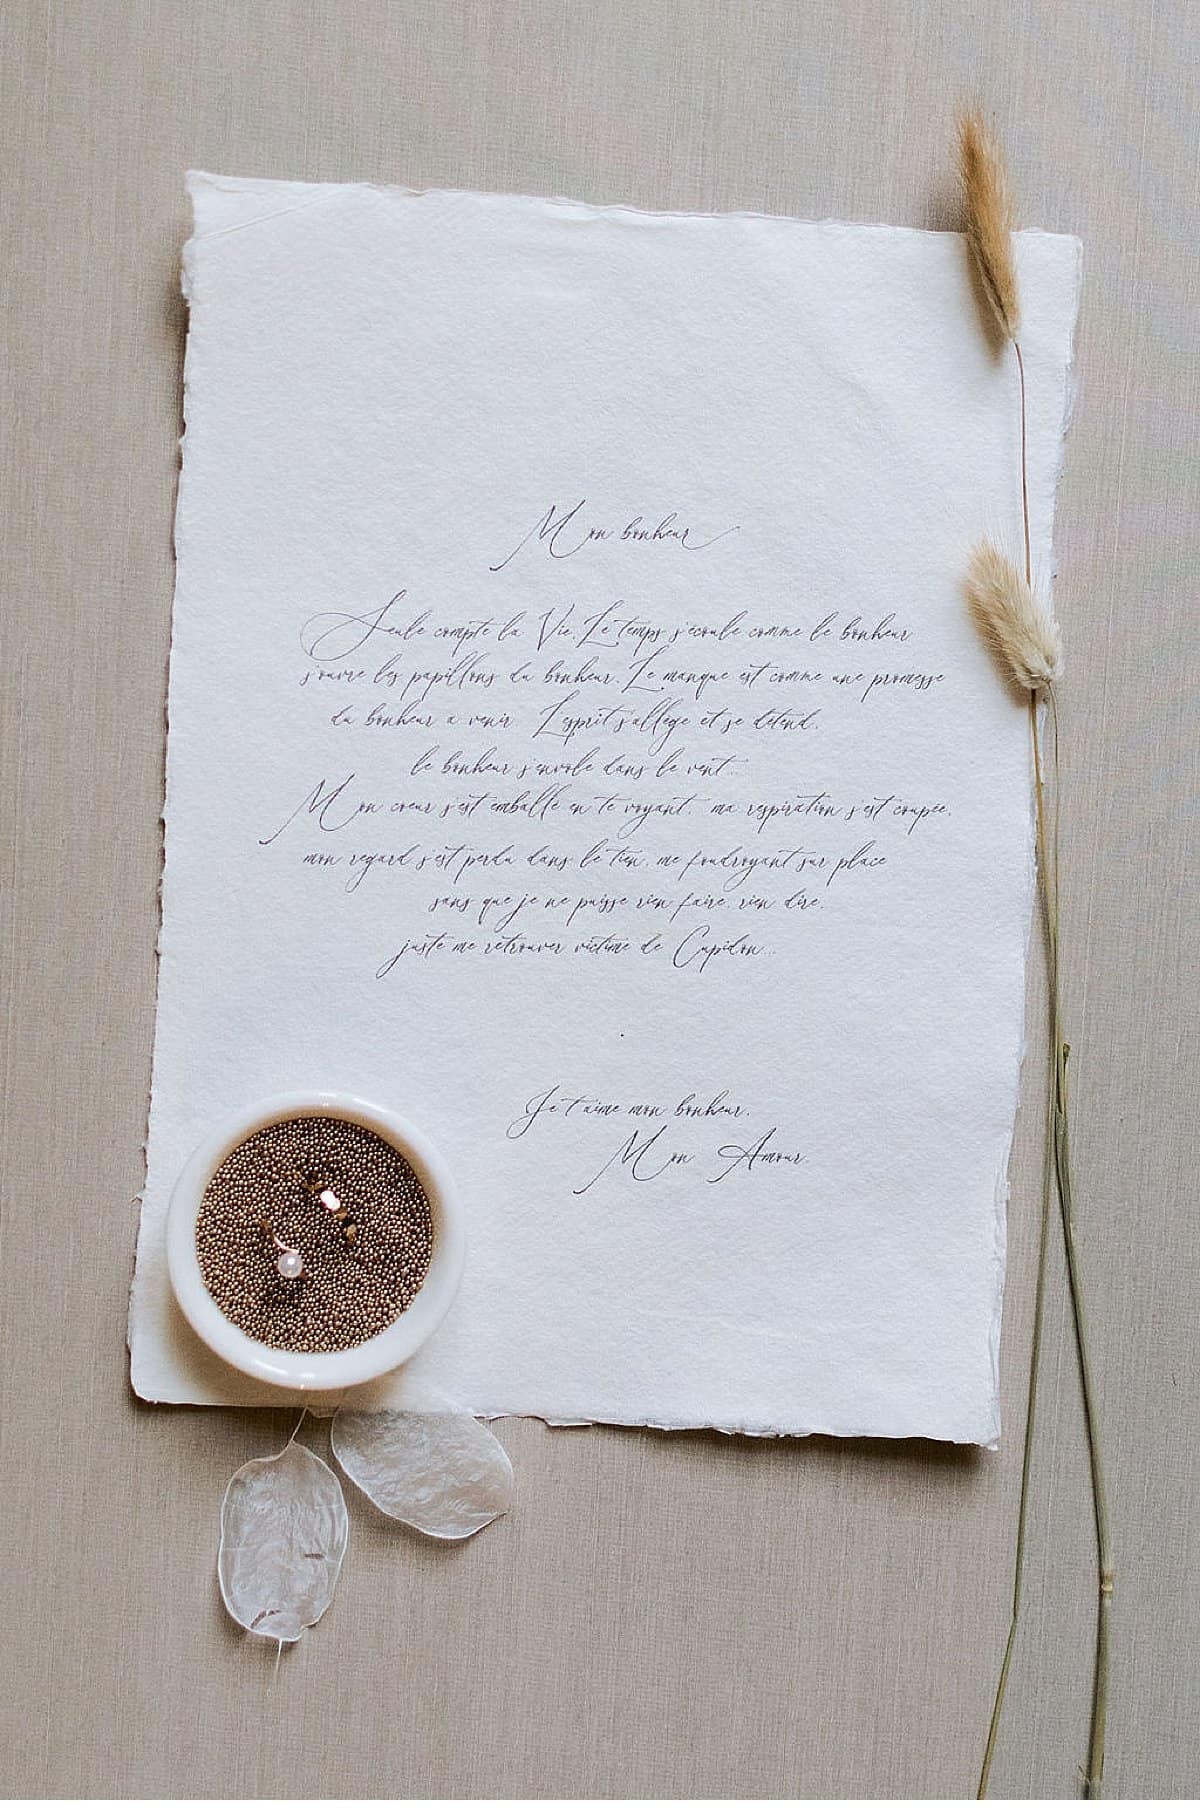 Mon bonheur
Seule compte la Vie. Le temps s'écoule comme le bonheur
s'ouvre les papillons du bonheur. Le manque est comme une promesse
du bonheur a venir. L'esprit s'allège et se détend,
le bonheur s'envole dans le vent...
Mon cœur s'est emballé en te voyant, ma respiration s'est coupée,
mon regard s'est perdu dans le tien, me foudroyant sur place
sans que je ne puisse rien faire, rien dire,
juste me retrouver victime de Cupidon...
Je t'aime mon bonheur,
Mon Amour.